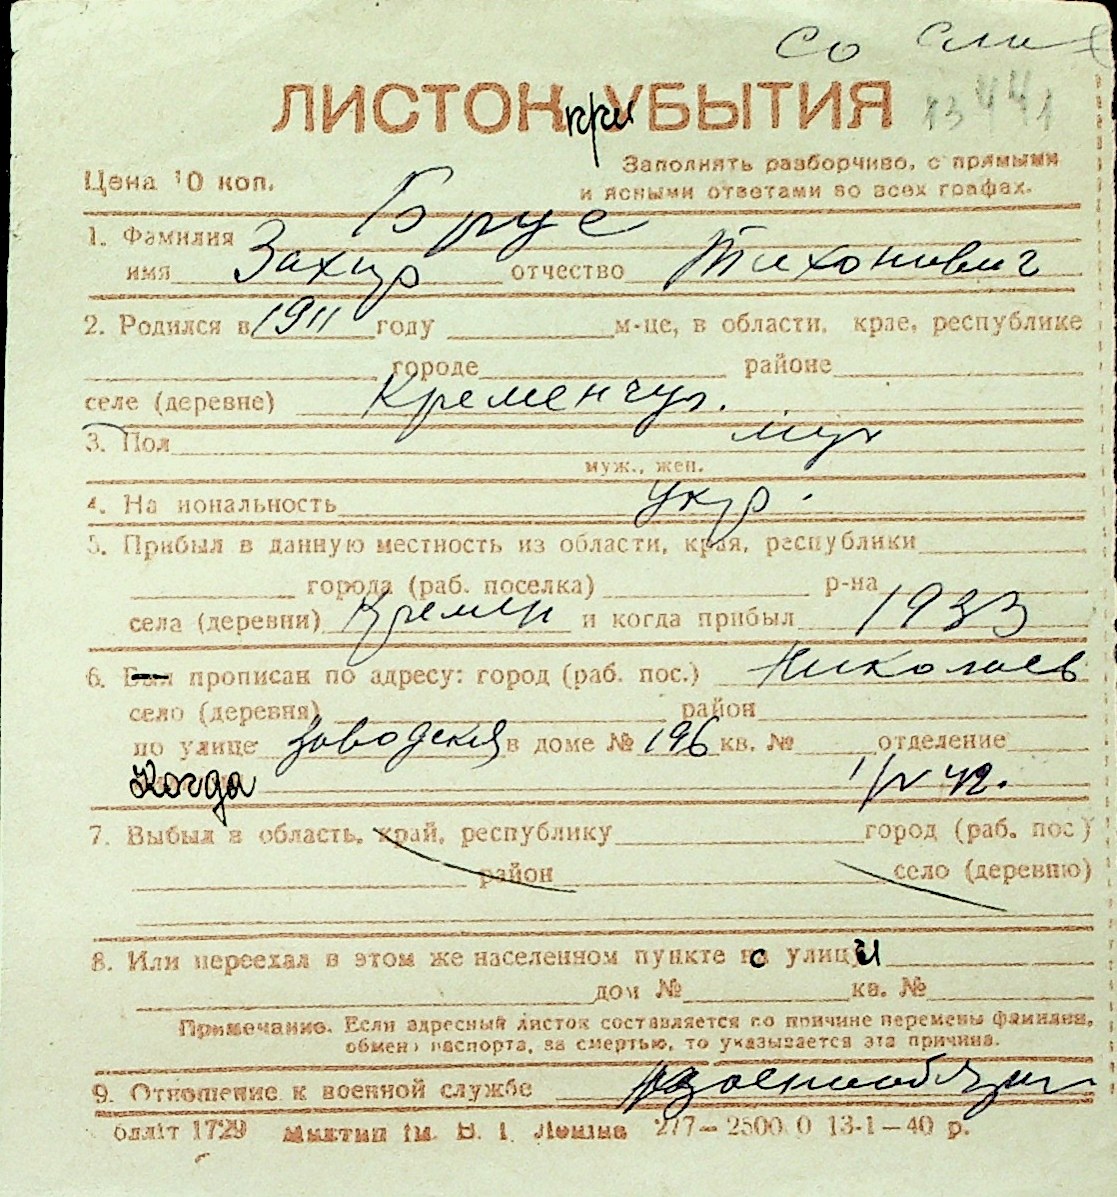 со сли
13441
ЛИСТОК при УБЫТИЯ
Цена 10 коп.
Заполнять разборчиво, с прямыми
и ясными ответами во всех графах.
1. Фамилия Брус
имя Захар отчество Тихонович
2. Родился в 1911 году м-це, в области, крае, республике
городе районе
селе (деревне) Кременчуг.
3. Пол муж
муж., жен.
4. На иональность укр.
5. Прибыл в данную местность из области, края, республики
города (раб. поселка) р-на
села (деревни) Кремен и когда прибыл 1933
6. Был прописан по адресу: город (раб. пос.) Николаев
село (деревня) район
по улице Заводская в доме № 196 кв. № отделение
Когда 1/IV 42.
7. Выбыл в область, край, республику город (раб. пос)
район село (деревню)
8. Или переехал в этом же населенном пункте с улицы
дом № кв. №
Примечание. Если адресный листок составляется по причине перемены фамилии,
обмена паспорта, за смертью, то указывается эта причина.
9. Отношение к военной службе военнообязан
білліт 1729 Мыктип ім. В. І. Леніна 277—2500.0 13-1—40 р.